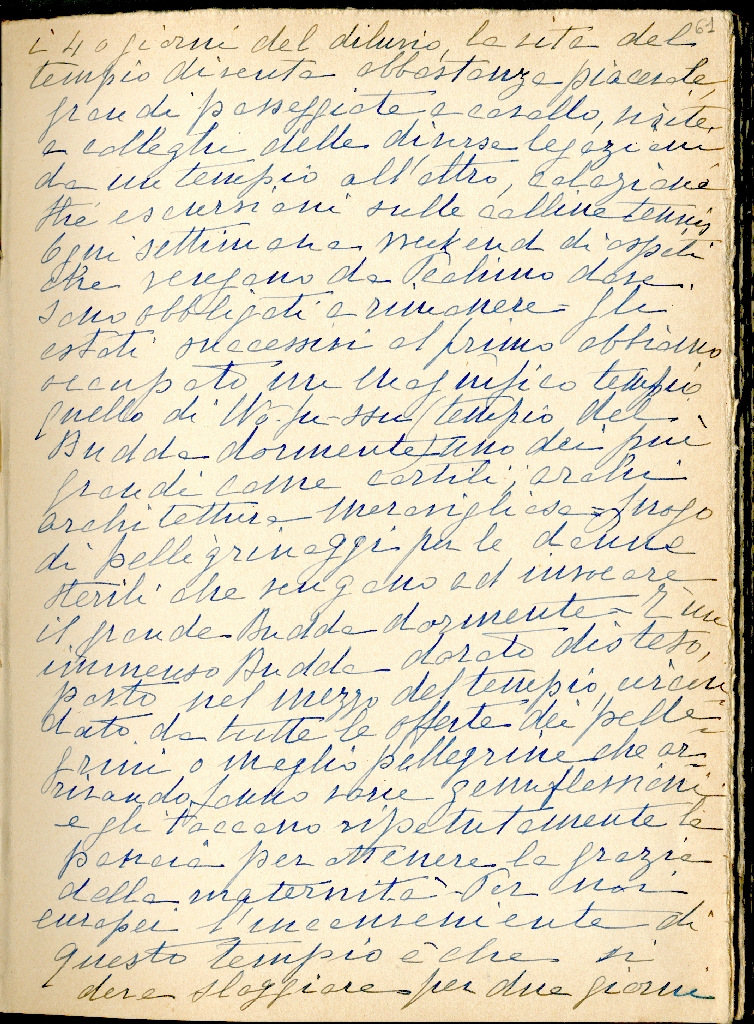 61
i 40 giorni del diluvio, la vita del
tempio diventa abbastanza piacevole,
grandi passeggiate a cavallo, visite
a colleghi delle diverse legazioni
da un tempio all'altro, colazioni
thé escursioni sulle colline tennis
Ogni settimana weekend di ospiti
che vengono da Pechino dove
sono obbligati a rimanere = Gli
estati successivi al primo abbiamo
occupato un magnifico tempio
quello di Wo-fu-ssu (tempio del
Budda dormente) uno dei più
grandi come cortili, archi
architettura meravigliosa = luogo
di pellegrinaggi per le donne
sterili che vengono ad invocare
il grande Budda dormente = È un
immenso Budda dorato disteso,
posto nel mezzo del tempio, circon
dato da tutte le offerte dei pelle=
grini o meglio pellegrine che ar=
rivando fanno varie genuflessioni
e gli toccano ripetutamente la
pancia per ottenere la grazia
della maternità - Per noi
europei l'inconveniente di
questo tempio è che si
deve sloggiare per due giorni